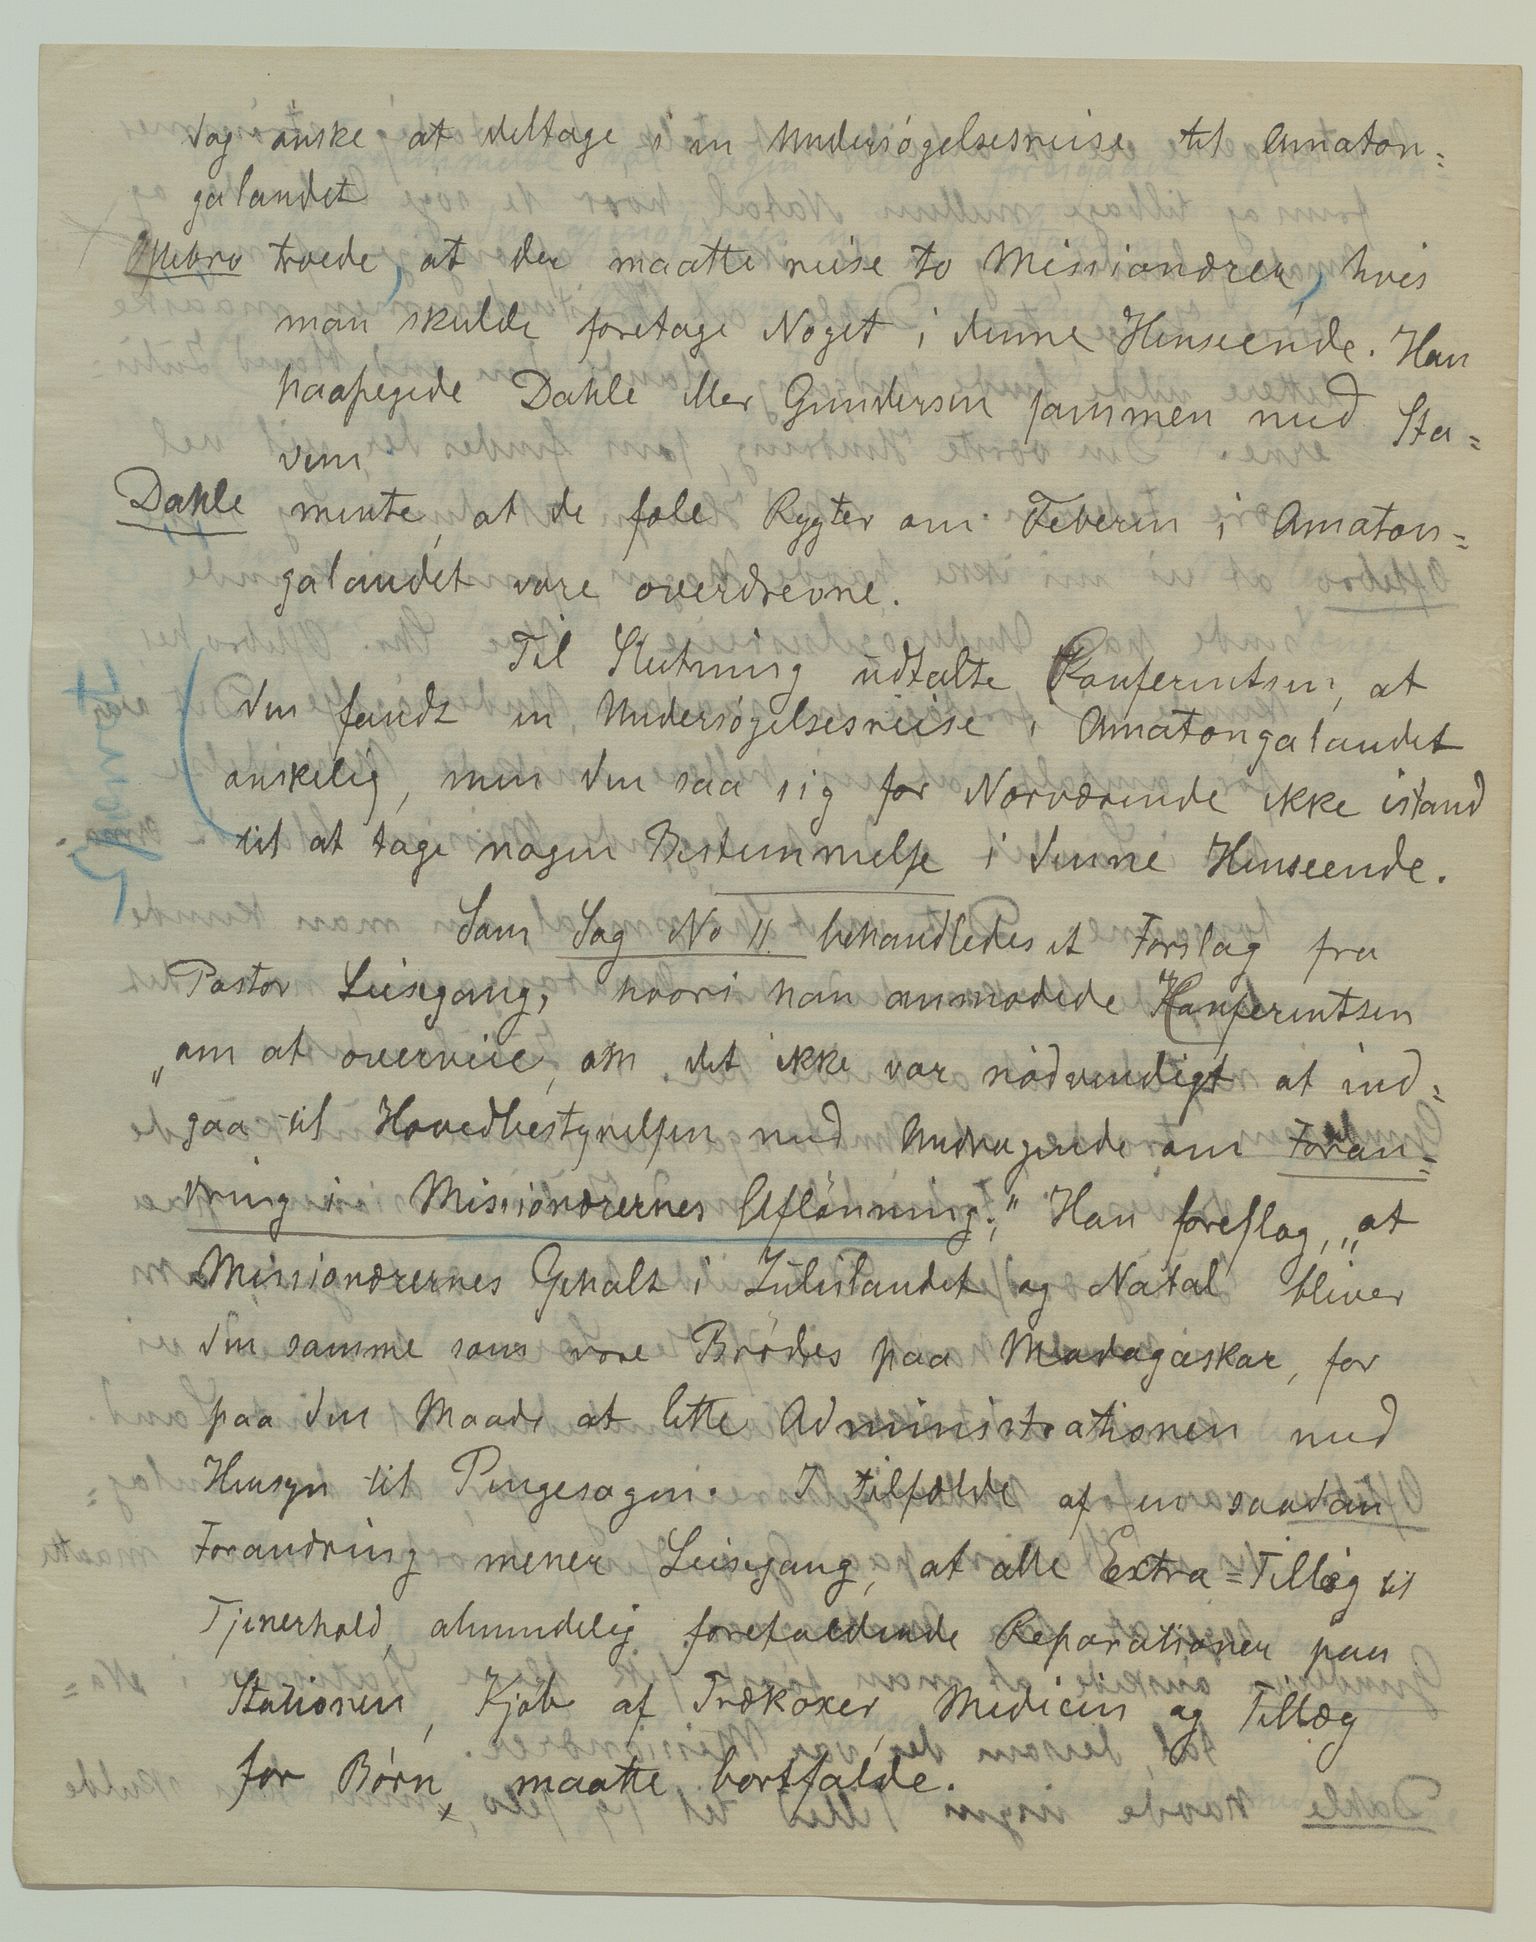 dog ønske at deltage i en Undersøgelsesreise til Amaton=
galandet
Oftebro troede, at der maatte reise to Missionærer, hvis
man skulde foretage Noget i denne Henseende. Han
paapegede Dahle eller Gundersen sammen med Sta=
vem
Dahle mente, at de fæle Rygter om Feberen i Amaton=
galandet vare overdrevne.
Til Slutning udtalte Konferentsen, at
den fandt en Undersøgelsesreise i Amatongalandet
ønskelig, men den saa sig for Nærværende ikke istand
til at tage nogen Bestemmelse i denne Henseende.
Som Sag No 11. behandledes et Forslag fra
Pastor Leisegang, hvori han anmodede Konferentsen
"om at overveie, om det ikke var nødvendigt at ind=
gaa til Hovedbestyrelsen med Andragende om Foran=
dring i Missionærernes Aflønning;" Han foreslog, "at
Missionærernes Gehalt i Zululandet og Natal bliver
den samme som vore Brødres paa Madagaskar, for
paa den Maade at lette Administrationen med
Hensyn til Pengesagen. I Tilfælde af en saadan
Forandring mener Leisegang, at alle Extra=Tillæg til
Tjenerhold, almindelig forefaldende Reparationer paa
Stationen, Kjøb af Trækoxer, Medicin og Tillæg
for Børn x maatte bortfalde.